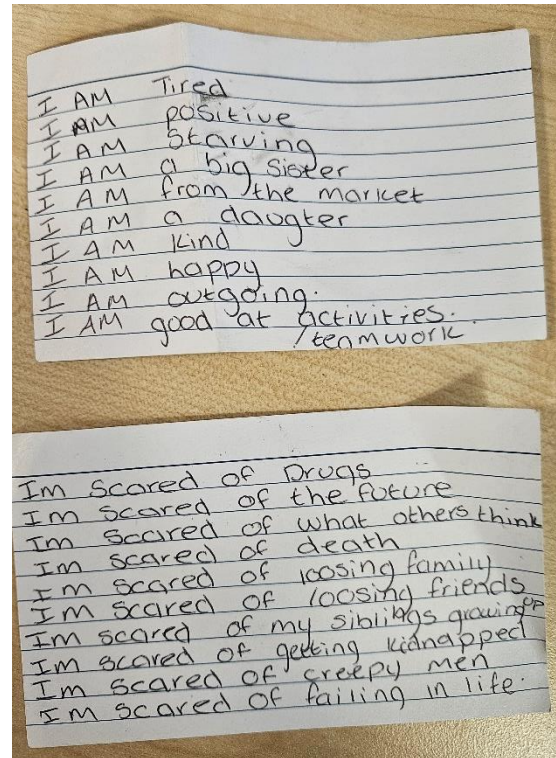 I AM Tired
I AM positive
I AM Starving
I AM a big sister
I AM from the market
I AM a daugter
I AM kind
I AM happy
I AM outgoing.
I AM good at activities.
/teamwork
Im scared of Drugs
Im scared of the future
Im scared of what others think
Im scared of death
Im scared of loosing family
Im scared of loosing friends
Im scared of my siblings growing up
Im scared of getting kidnapped
Im scared of creepy men
Im scared of failing in life.